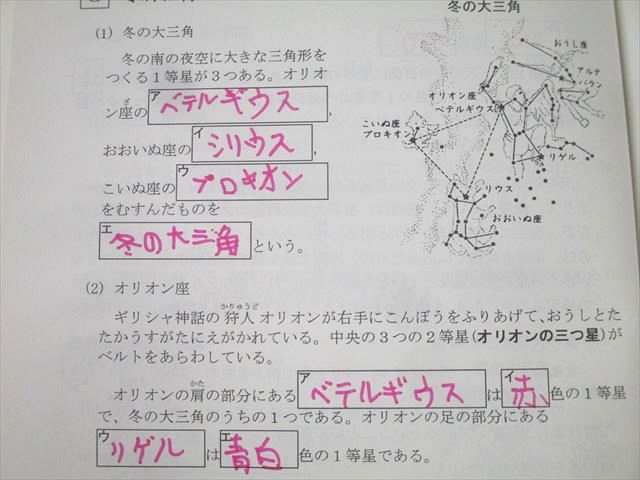 (1) 冬の大三角
冬の南の夜空に大きな三角形を
つくる１等星が３つある。オリオ
ン座のア ベテルギウス，
おおいぬ座のイ シリウス，
こいぬ座のウ プロキオン
をむすんだものを
エ 冬の大三角という。
冬の大三角
おうし座
アルデ
バラン
オリオン座
ベテルギウス
こいぬ座
プロキオン
リゲル
シリウス
おおいぬ座
(2) オリオン座
ギリシャ神話の狩人オリオンが右手にこんぼうをふりあげて，おうしとた
たかうすがたにえがかれている。中央の３つの２等星(オリオンの三つ星)が
ベルトをあらわしている。
オリオンの肩の部分にあるア ベテルギウスはイ 赤色の１等星
で，冬の大三角のうちの１つである。オリオンの足の部分にある
ウ リゲルはエ 青白色の１等星である。